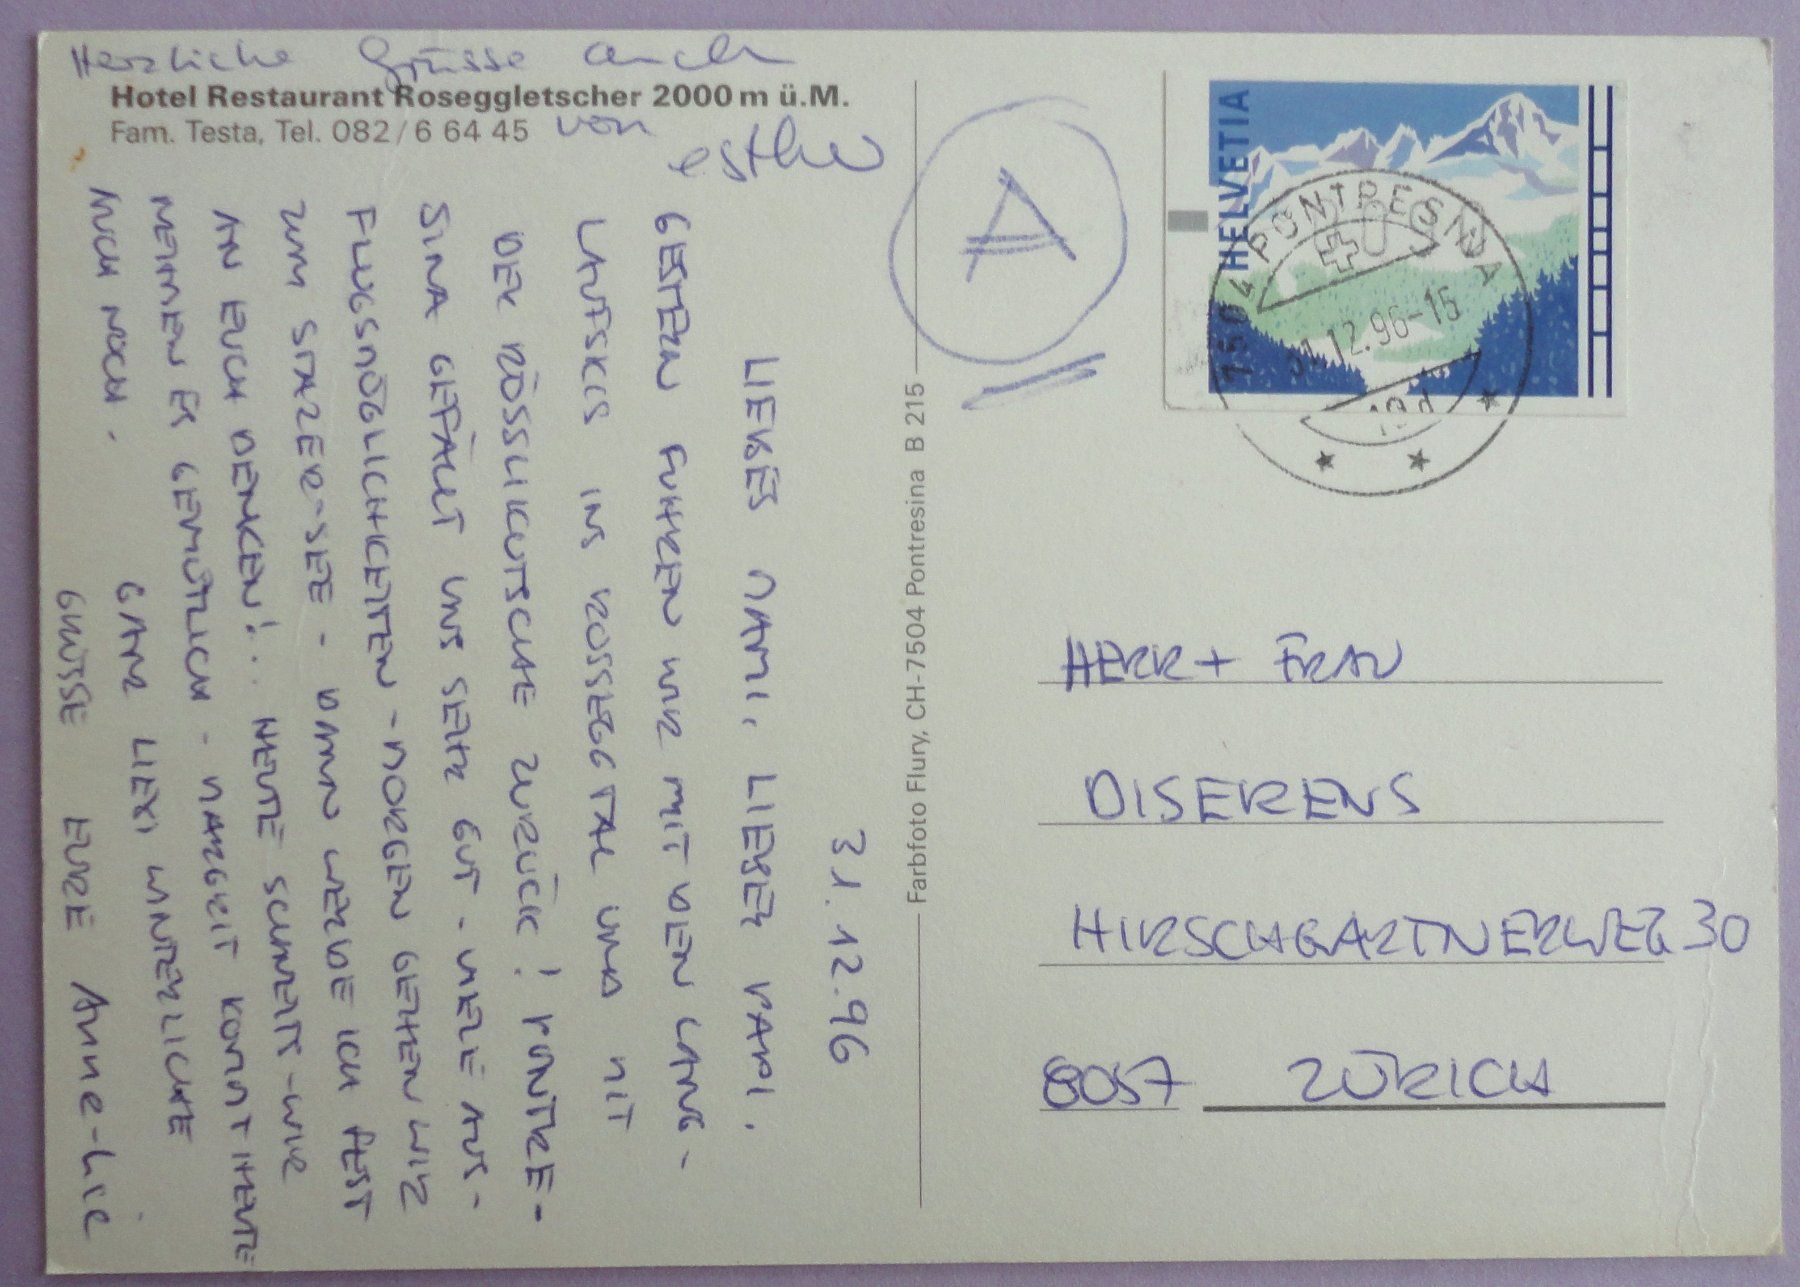 Herzliche Grüsse auch
Hotel Restaurant Roseggletscher 2000 m ü.M.
Fam. Testa, Tel. 082/6 64 45
von
esther
31.12.96
LIEBES MAMI, LIEBER PAPI.
GESTERN FUHREN WIR MIT DEN LANG-
LAUFSKIS INS ROSSEGGTAL UND MIT
DER RÖSSLIKUTSCHE ZURÜCK! PONTRE-
SINA GEFÄLLT UNS SEHR GUT. VIELE AUS-
FLUGSMÖGLICHKEITEN - MORGEN GEHEN WIR
ZUM STAZER-SEE - DANN WERDE ICH FEST
AN EUCH DENKEN!.. HEUTE SCHNEITS - WIR
NEHMEN ES GEMÜTLICH - MARGRIT KOMMT HEUTE
AUCH NOCH.
GANZ LIEBI WINTERLICHE
GRÜSSE EURE Anne-Lie
Farbfoto Flury, CH-7504 Pontresina B 215
A
HELVETIA
7504 PONTRESINA
31.12.96-15
HERR + FRAU
DISERENS
HIRSCHGARTNERWEG 30
8057 ZÜRICH